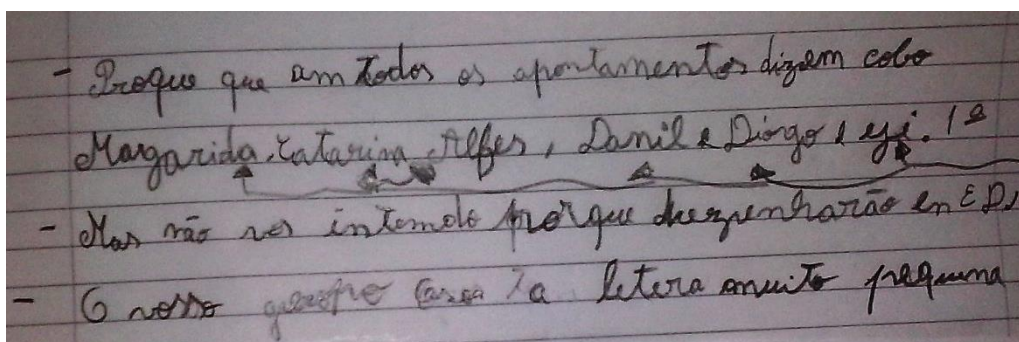 - Proque que am todos os apontamentos dizem cobo
Margarida, Catarina Alfes, Danil e Diogo e eji. 1º
- Mas não nos intemdo porque desepenharão en E D,
- O nosso letera muito pequena